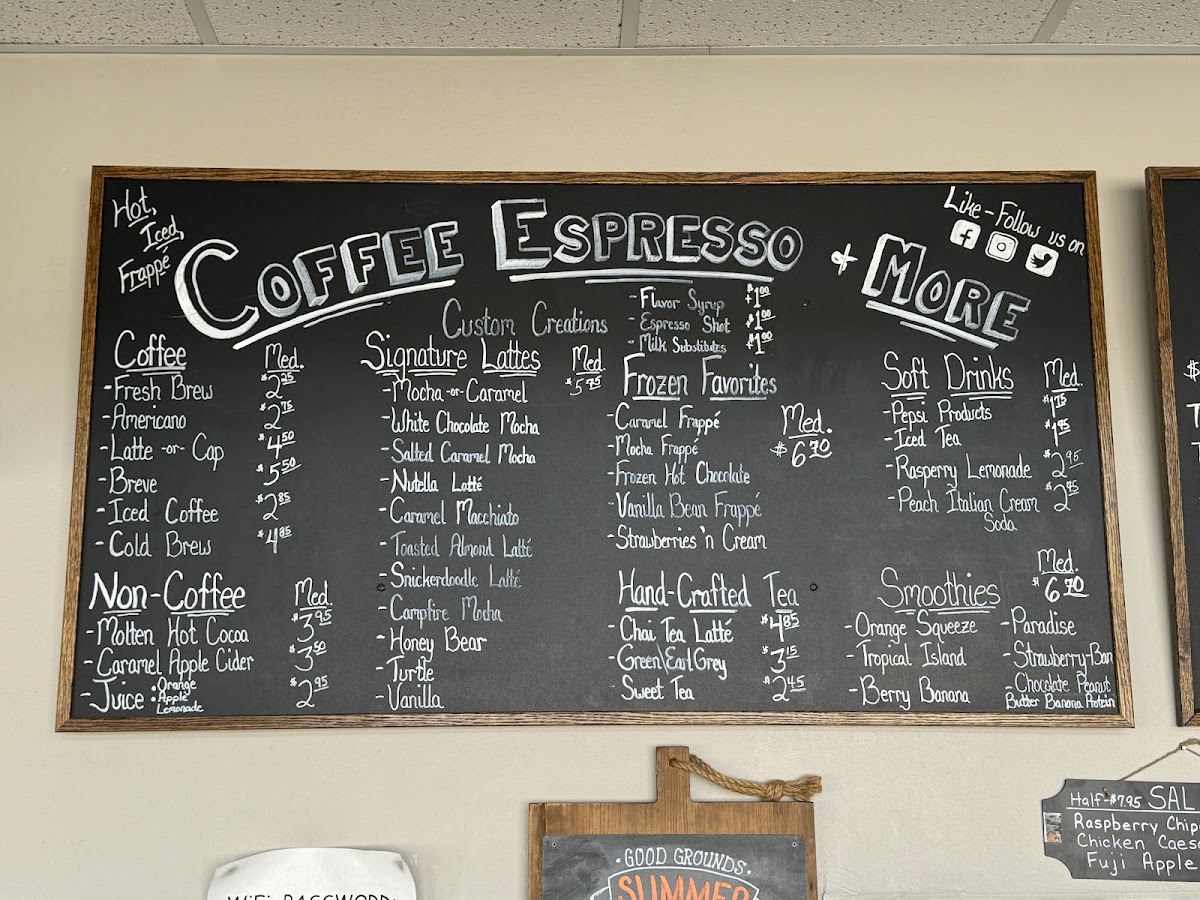 Hot,
Iced,
Frappé
COFFEE ESPRESSO + MORE
Like - Follow us on
Custom Creations
- Flavor Syrup +$1.00
- Espresso Shot +$1.00
- Milk Substitutes +$1.00
Coffee Med.
- Fresh Brew
- Americano $2.75
- Latte -or- Cap $4.50
- Breve $5.50
- Iced Coffee $2.85
- Cold Brew $4.85
Non-Coffee Med.
- Molten Hot Cocoa $3.95
- Caramel Apple Cider $3.50
- Juice: Orange $2.95
Apple
Lemonade
Signature Lattes Med.
- Mocha -or- Caramel
- White Chocolate Mocha
- Salted Caramel Mocha
- Nutella Latté
- Caramel Macchiato
- Toasted Almond Latté
- Snickerdoodle Latté
- Campfire Mocha
- Honey Bear
- Turtle
- Vanilla
Frozen Favorites
Med.
$6.70
- Caramel Frappé
- Mocha Frappé
- Frozen Hot Chocolate
- Vanilla Bean Frappé
- Strawberries 'n Cream
Hand-Crafted Tea
- Chai Tea Latté $4.85
- Green\Earl Grey $3.15
Sweet Tea $2.45
Soft Drinks Med.
- Pepsi Products $1.75
- Iced Tea $1.95
- Rasperry Lemonade $2.95
- Peach Italian Cream
Soda
Med.
$6.70
Smoothies
- Orange Squeeze
- Tropical Island
- Berry Banana
- Paradise
- Strawberry-Ban
- Chocolate Peanut
Butter Banana Protein
WiFi PASSWORD:
• GOOD GROUNDS •
SUMMER
Half-$7.95 SAL
Raspberry Chip
Chicken Caes
Fuji Apple